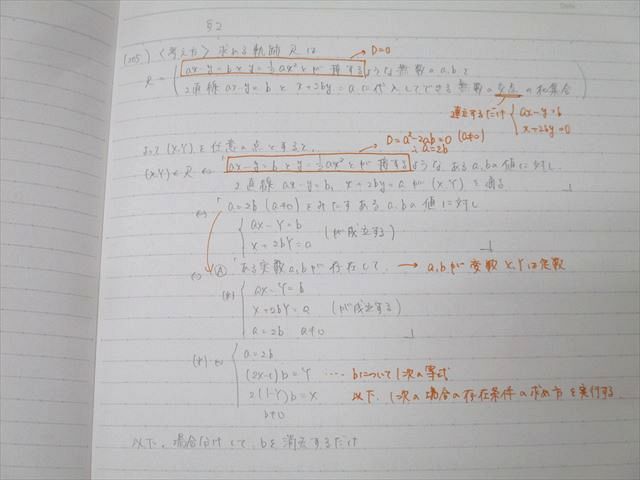 §2
(205) <考え方> 求める軌跡 R は → D=0
R = ( ax-y=b と y=½ax² とが 接するような無数の a, b を
2直線 ax-y=b と x+2by=a に代入してできる無数の交点の和集合 )
連立するだけ { ax-y=b
x+2by=0
よって (X,Y) を任意の点とすると、 → D=a²-2ab=0 (a≠0)
∴ a=2b
(X,Y)∈R ⇔ 「ax-y=b と y=½ax² とが 接するような ある a, b の値に対し
2直線 ax-y=b, x+2by=a が (X,Y) を通る 」
⇔ 「a=2b (a≠0) をみたす ある a, b の値に対し
{ aX-Y=b
X+2bY=a (が成立する) 」
⇔ Ⓐ 「ある実数 a, b が存在して、 → a, b が変数 X, Y は定数
(*) { aX-Y=b
X+2bY=a (が成立する)
a=2b a≠0 」
(*) ⇔ { a=2b
(2X-1)b=Y ‥‥ bについて1次の等式
2(1-Y)b=X 以下、1次の場合の存在条件の求め方を実行する
b≠0
以下、場合分けして、bを消去するだけ